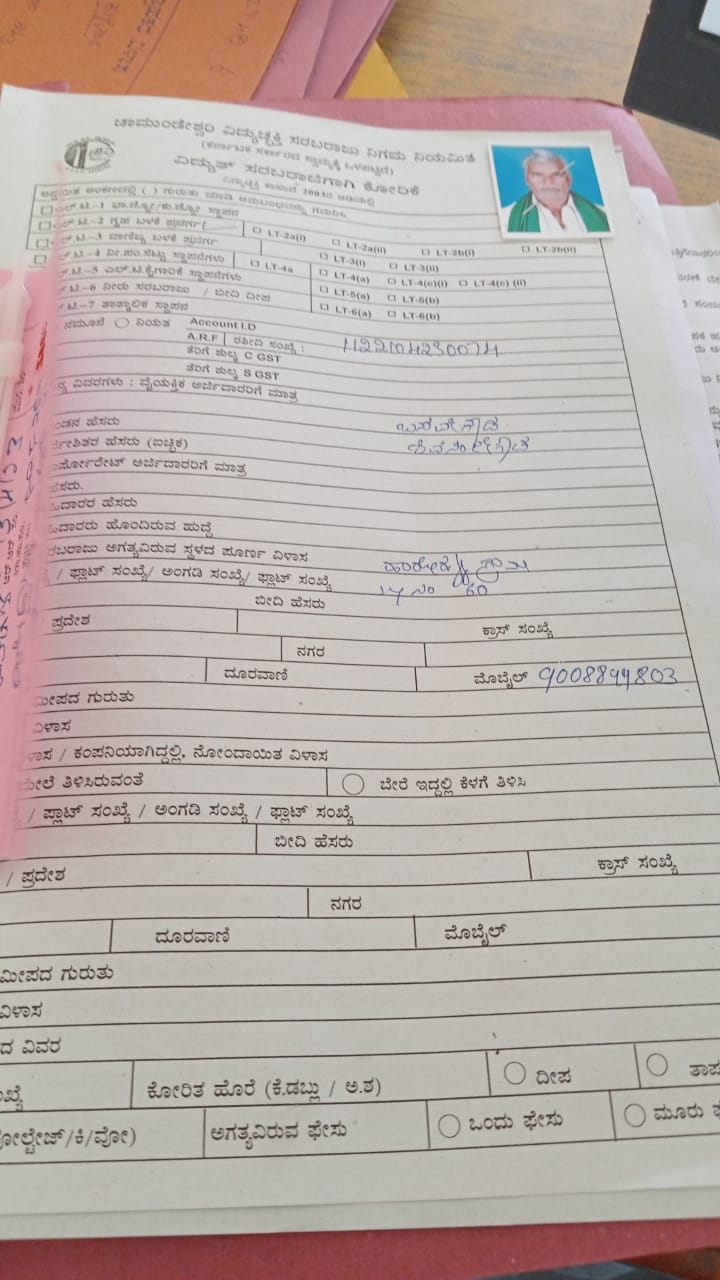 ಚಾಮುಂಡೇಶ್ವರಿ ವಿದ್ಯುಚ್ಛಕ್ತಿ ಸರಬರಾಜು ನಿಗಮ ನಿಯಮಿತ
(ಕರ್ನಾಟಕ ಸರ್ಕಾರದ ಸ್ವಾಮ್ಯಕ್ಕೆ ಒಳಪಟ್ಟಿದೆ)
ವಿದ್ಯುತ್ ಸರಬರಾಜಿಗಾಗಿ ಕೋರಿಕೆ
ವಿದ್ಯುಚ್ಛಕ್ತಿ ಕಾಯಿದೆ 2003ರ ಅಡಿಯಲ್ಲಿ
ಅನ್ವಯಿತ ಅಂಕಣದಲ್ಲಿ ( ) ಗುರುತು ಮಾಡಿ ಅನುಬಂಧವನ್ನು ಗಮನಿಸಿ
ಎಲ್.ಟಿ-1 ಭಾ.ಜ್ಯೋ/ಕು.ಜ್ಯೋ ಸ್ಥಾಪನ
ಎಲ್.ಟಿ-2 ಗೃಹ ಬಳಕೆ ಪ್ರವರ್ಗ LT-2a(i) LT-2a(ii) LT-2b(i) LT-2b(ii)
ಎಲ್.ಟಿ-3 ವಾಣಿಜ್ಯ ಬಳಕೆ ಪ್ರವರ್ಗ LT-3(i) LT-3(ii)
ಎಲ್.ಟಿ-4 ನೀ.ಪಂ.ಸೆಟ್ಟು ಸ್ಥಾಪನೆಗಳು LT-4a LT-4(a) LT-4(c)(i) LT-4(c) (ii)
ಲ್.ಟಿ.-5 ಎಲ್.ಟಿ.ಕೈಗಾರಿಕೆ ಸ್ಥಾಪನೆಗಳು LT-5(a) LT-5(b)
ಲ್.ಟಿ.-6 ನೀರು ಸರಬರಾಜು / ಬೀದಿ ದೀಪ LT-6(a) LT-6(b)
ಲ್.ಟಿ.-7 ತಾತ್ಕಾಲಿಕ ಸ್ಥಾಪನ
ನಮೂನೆ ನಿಯತ Account I.D
A.R.F ರಶೀದಿ ಸಂಖ್ಯೆ : 422104230074
ತೆರಿಗೆ ಶುಲ್ಕ C GST
ತೆರಿಗೆ ಶುಲ್ಕ S GST
ನ್ಯ ವಿವರಗಳು : ವೈಯಕ್ತಿಕ ಅರ್ಜಿದಾರರಿಗೆ ಮಾತ್ರ
ಂಡನ ಹೆಸರು ಬಸವೇಗೌಡ
ರ್ದೇಶಿತರ ಹೆಸರು (ಐಚ್ಛಿಕ)
ರ್ಪೋರೇಟ್ ಅರ್ಜಿದಾರರಿಗೆ ಮಾತ್ರ
ಹೆಸರು.
ಜಿದಾರರ ಹೆಸರು
ಜಿದಾರರು ಹೊಂದಿರುವ ಹುದ್ದೆ
ರಬರಾಜು ಅಗತ್ಯವಿರುವ ಸ್ಥಳದ ಪೂರ್ಣ ವಿಳಾಸ
/ ಪ್ಲಾಟ್ ಸಂಖ್ಯೆ/ ಅಂಗಡಿ ಸಂಖ್ಯೆ/ ಫ್ಲಾಟ್ ಸಂಖ್ಯೆ ಗ್ರಾಮ
ಬೀದಿ ಹೆಸರು ನಂ 60
ಪ್ರದೇಶ ಕ್ರಾಸ್ ಸಂಖ್ಯೆ
ನಗರ
ದೂರವಾಣಿ ಮೊಬೈಲ್ 9008844803
ಮೀಪದ ಗುರುತು
ವಿಳಾಸ
ಳಾಸ / ಕಂಪನಿಯಾಗಿದ್ದಲ್ಲಿ, ನೋಂದಾಯಿತ ವಿಳಾಸ
ಮೇಲೆ ತಿಳಿಸಿರುವಂತೆ ಬೇರೆ ಇದ್ದಲ್ಲಿ ಕೆಳಗೆ ತಿಳಿಸಿ
/ ಪ್ಲಾಟ್ ಸಂಖ್ಯೆ / ಅಂಗಡಿ ಸಂಖ್ಯೆ / ಫ್ಲಾಟ್ ಸಂಖ್ಯೆ
ಬೀದಿ ಹೆಸರು
/ ಪ್ರದೇಶ ಕ್ರಾಸ್ ಸಂಖ್ಯೆ
ನಗರ
ದೂರವಾಣಿ ಮೊಬೈಲ್
ಮೀಪದ ಗುರುತು
ವಿಳಾಸ
ದ ವಿವರ
ಖ್ಯೆ ಕೋರಿತ ಹೊರೆ (ಕೆ.ಡಬ್ಲು / ಅ.ಶ) ದೀಪ ತಾಪ
ೋಲ್ಟೇಜ್/ಕಿ/ವೋ) ಅಗತ್ಯವಿರುವ ಫೇಸು ಒಂದು ಫೇಸು ಮೂರು ಫೆ